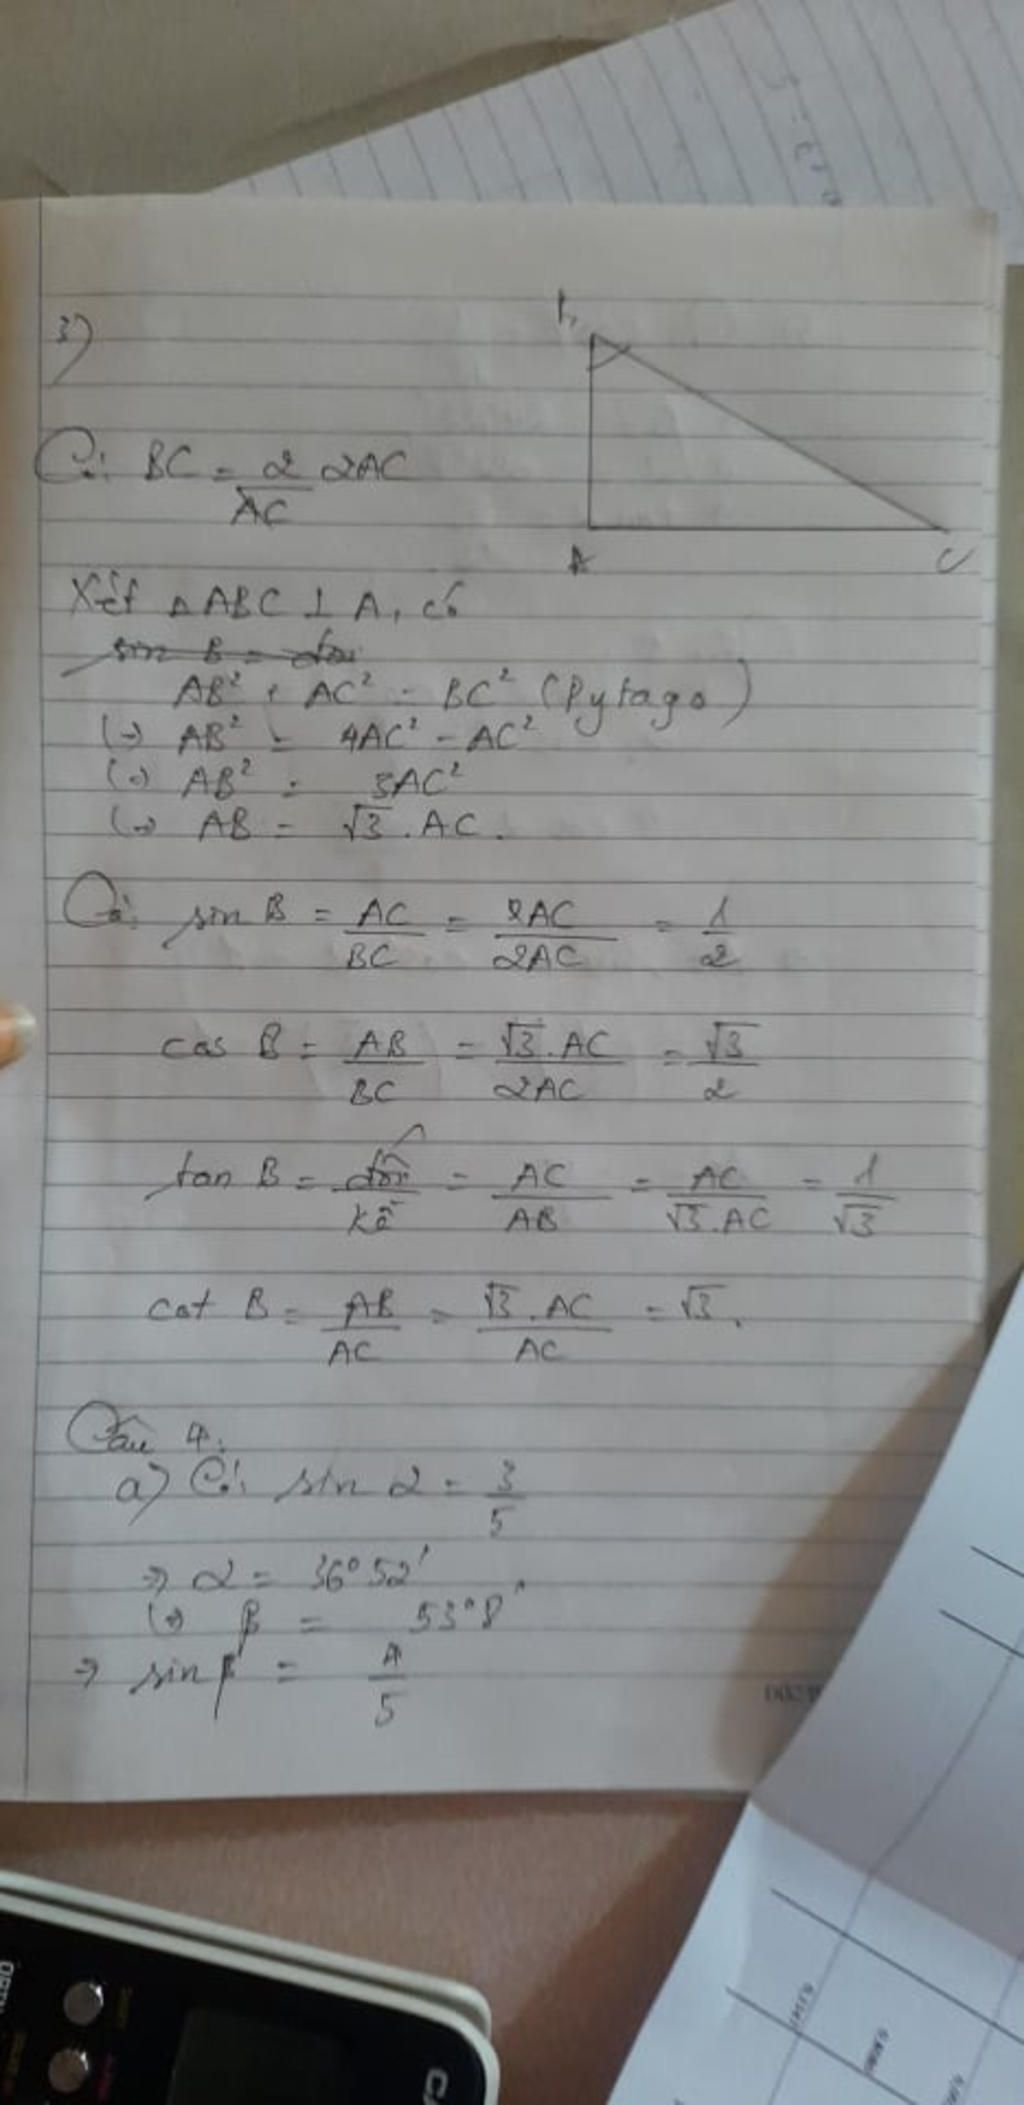 3)
B
A
C
Có: BC = 2 2AC
AC
Xét △ABC ⊥ A, có
sin B =
AB² + AC² = BC² (Pytago)
(=) AB² = 4AC² - AC²
(=) AB² = 3AC²
(=) AB = √3 . AC.
Có: sin B = AC/BC = AC/2AC = 1/2
cos B = AB/BC = √3.AC/2AC = √3/2
tan B = đối/kề = AC/AB = AC/√3.AC = 1/√3
cot B = AB/AC = √3.AC/AC = √3.
Câu 4:
a) Có: sin α = 3/5
=> α = 36°52'
(=) β = 53°8'
=> sin β = 4/5
CA